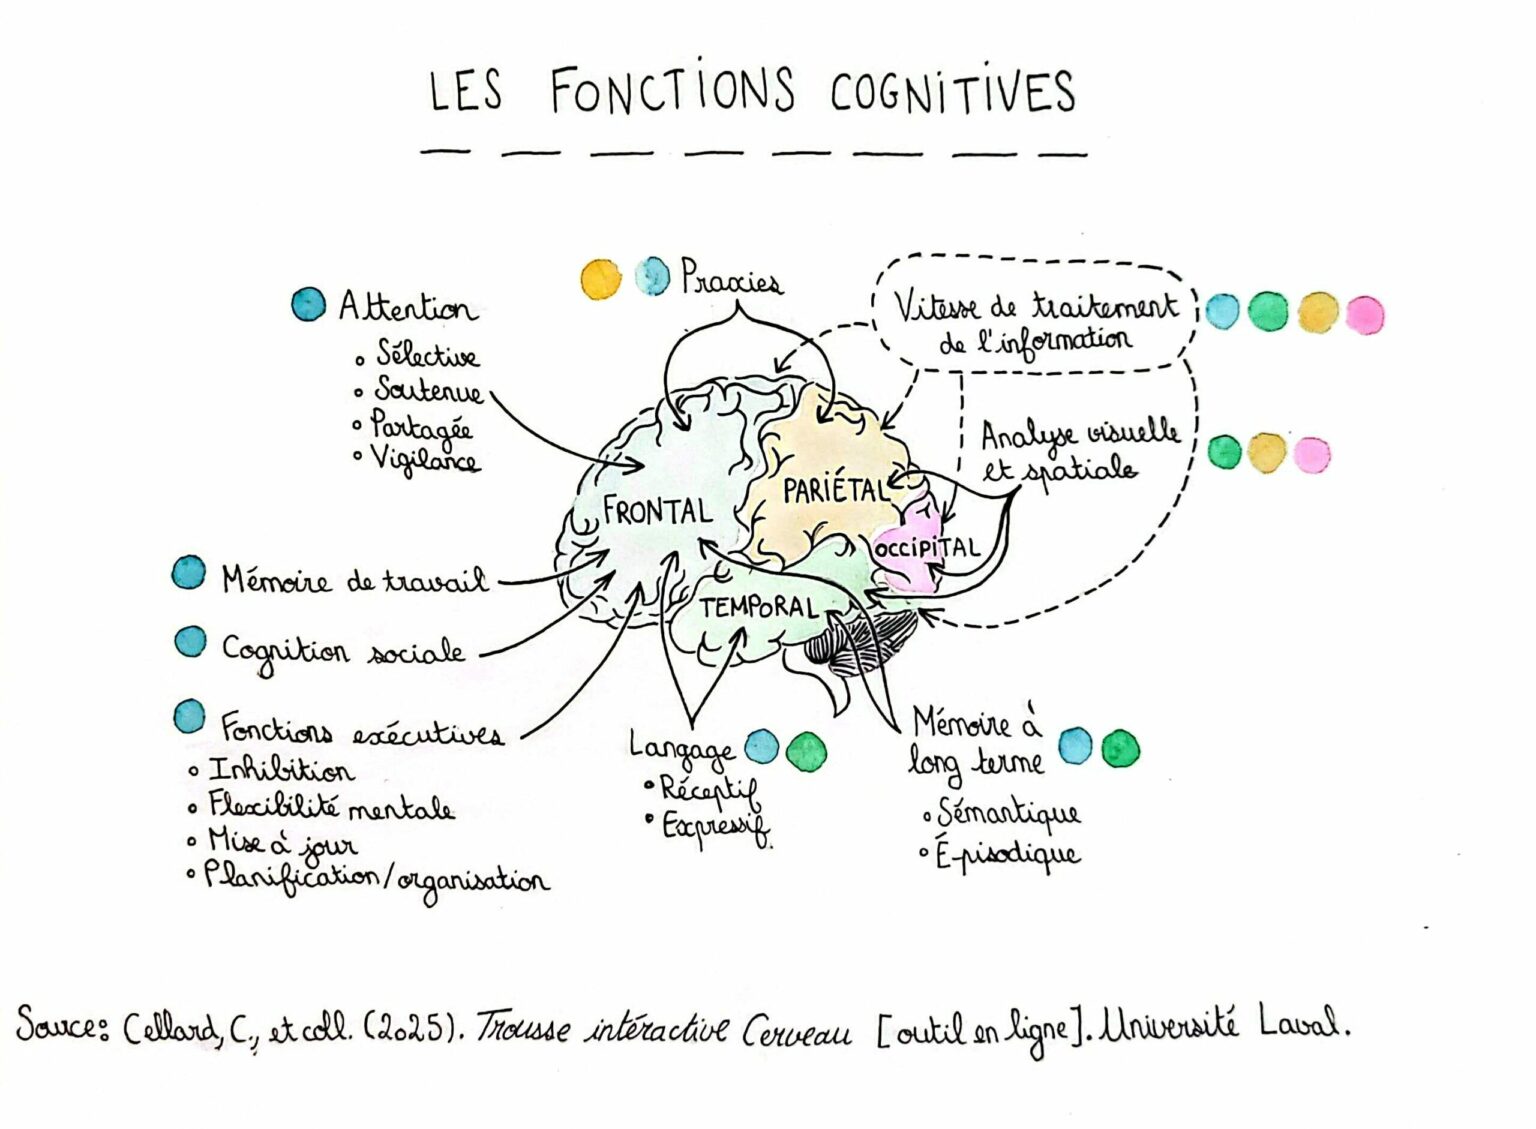 LES FONCTIONS COGNITIVES
Praxies
Attention
Sélective
Soutenue
Partagée
Vigilance
Vitesse de traitement
de l'information
Analyse visuelle
et spatiale
FRONTAL
PARIÉTAL
OCCIPITAL
TEMPORAL
Mémoire de travail
Cognition sociale
Fonctions exécutives
Inhibition
Flexibilité mentale
Mise à jour
Planification/organisation
Langage
Réceptif
Expressif.
Mémoire à
long terme
Sémantique
É-pisodique
Source: Cellard, C., et coll. (2025). Trousse intéractive Cerveau [outil en ligne]. Université Laval.